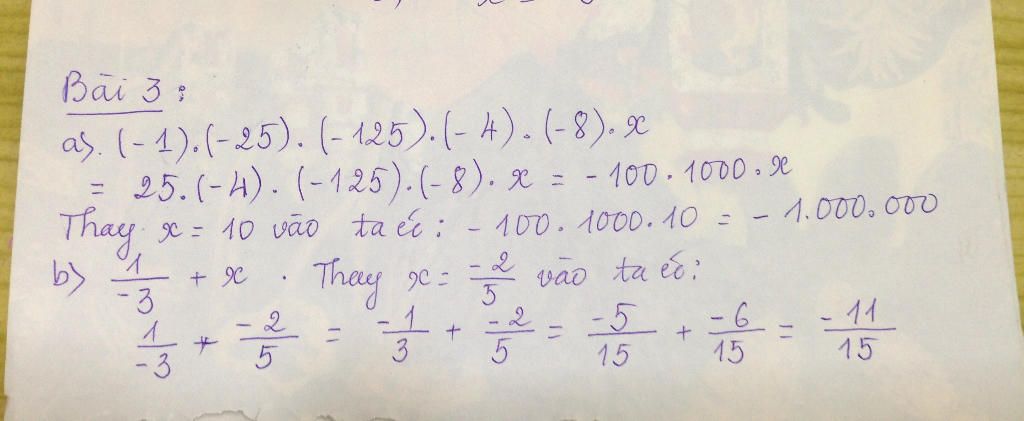 Bài 3 :
a). (-1).(-25).(-125).(-4).(-8).x
= 25.(-4).(-125).(-8).x = -100.1000.x
Thay x = 10 vào ta có : -100.1000.10 = -1.000.000
b) 1/-3 + x . Thay x = -2/5 vào ta có :
1/-3 + -2/5 = -1/3 + -2/5 = -5/15 + -6/15 = -11/15